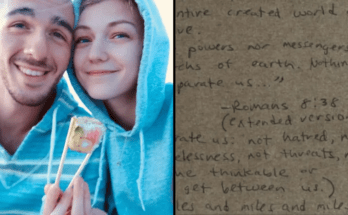 ntire created world
ve:
powers nor messengers
hs of earth. Nothin
parate us..."
-Romans 8:38
(extended version
rate us: not hatred, n
elessness, not threats, n
he thinkable or
get between us.)
les and miles and mile